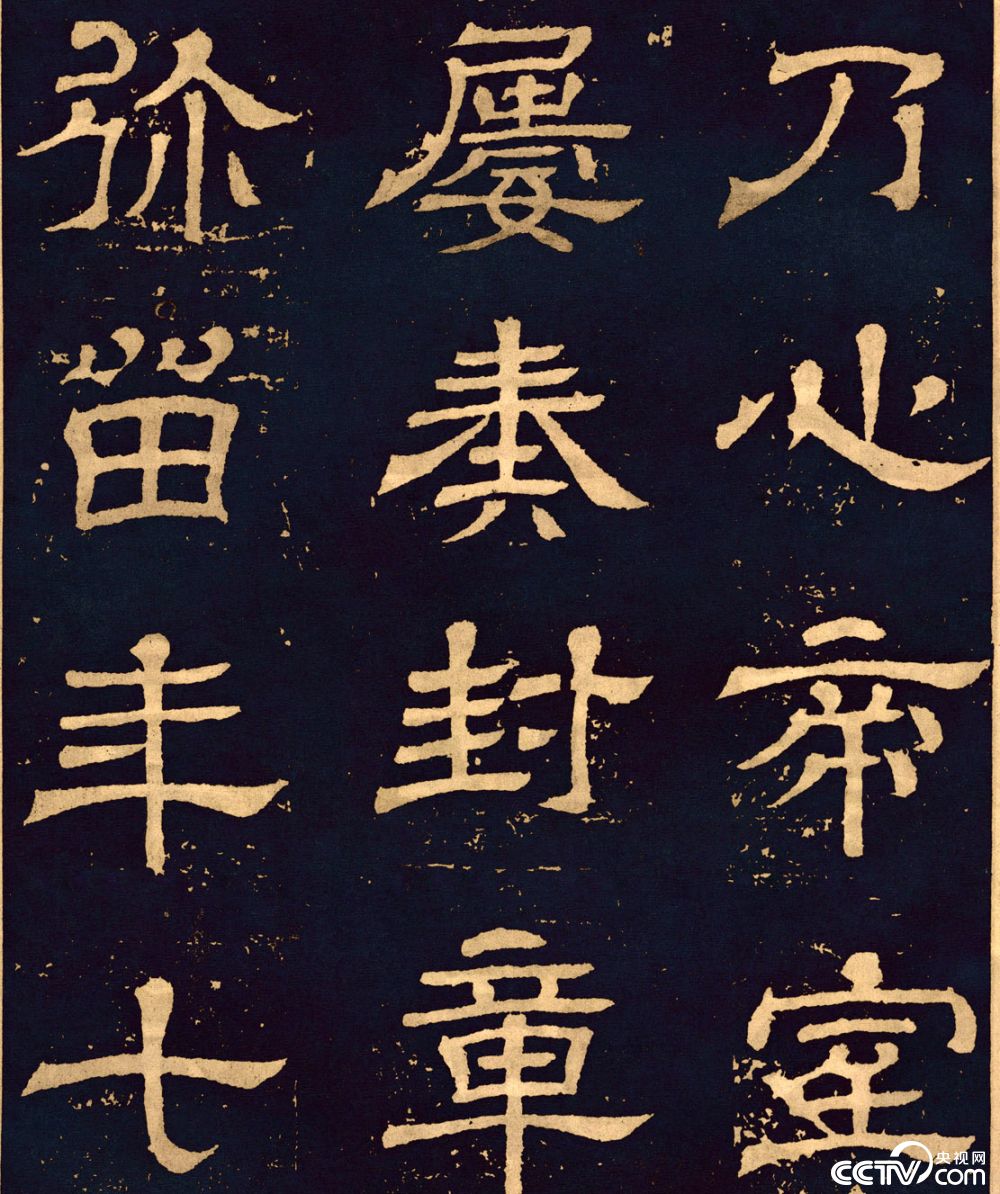 乃心帝室
屡奏封章
弥留年七
央视网
CCTV.com